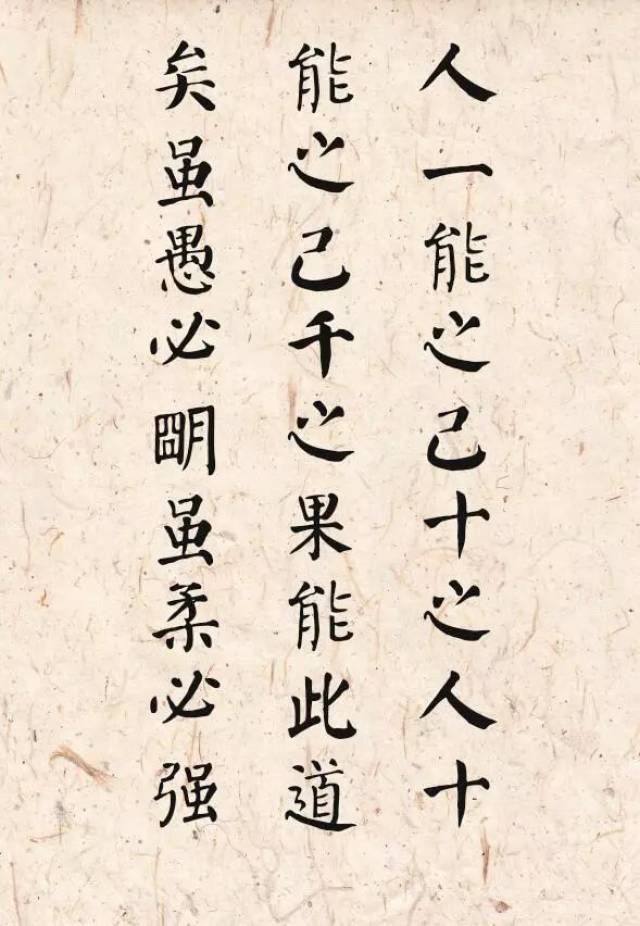 人一能之己十之人十
能之己千之果能此道
矣虽愚必明虽柔必强